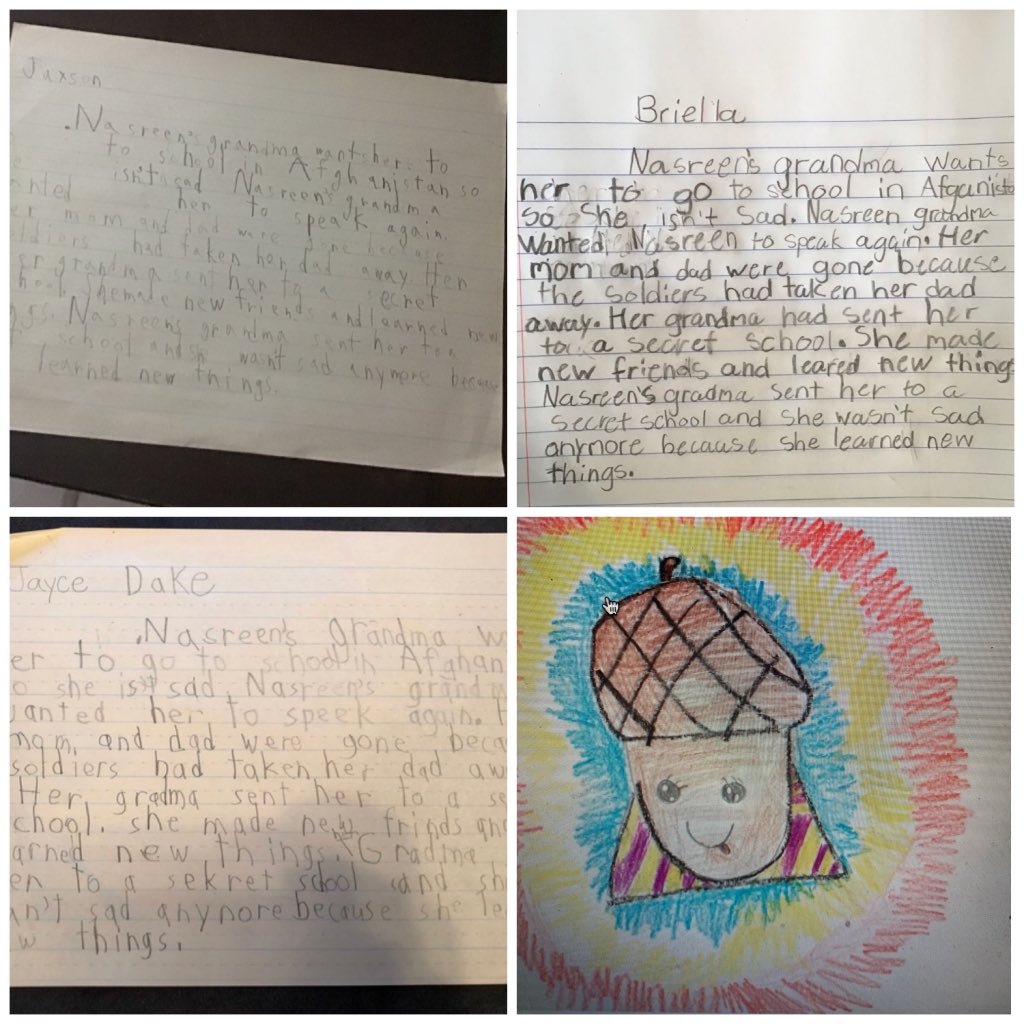 Jaxson
.Nasreen's grandma wants her to
to school in Afghanistan so
isn't sad Nasreen's grandma
her to speak again.
mom and dad were gone because
had taken her dad away. Her
grandma sent her to a secret
she made new friends and learned new
Nasreens grandma sent her to a
school and sh wasnt sad anymore because
learned new things.
Briella
Nasreen's grandma wants
her to go to school in Afganist
so she isn't sad. Nasreen
wanted Nasreen to speak again. Her
mom and dad were gone because
the soldiers had taken her dad
away. Her grandma had sent her
to a secret school. She made
new friends and leared new thing
Nasreen's gradma sent her to a
secret school and she wasn't sad
anymore because she learned new
things.
Jayce Dake
.Nasreen's Grandma w
er to go to school in Afghan
o she isnt sad. Nasreen's grandm
anted her to speek again. H
mom, and dad were gone beca
soldiers had taken her dad aw
Her gradma sent her to a se
chool. she made new frinds and
arned new things. Gradma
en to a sekret school and sh
an't sad anynore because she lea
w things.